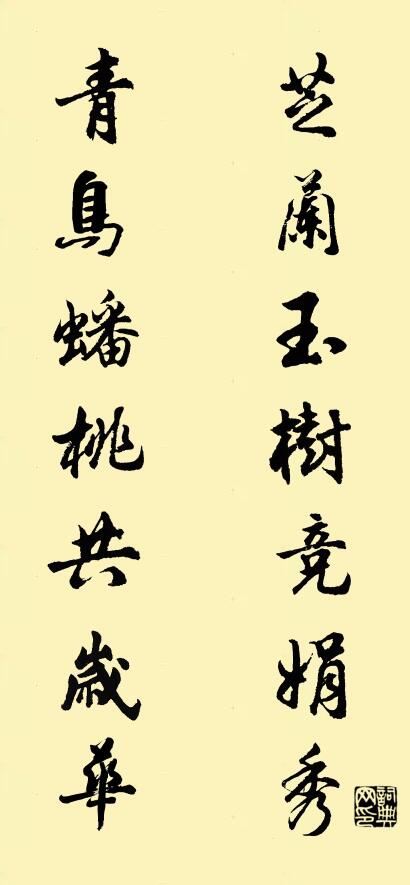 芝蘭玉樹竞娟秀
青鳥蟠桃共歲華
詞典网印